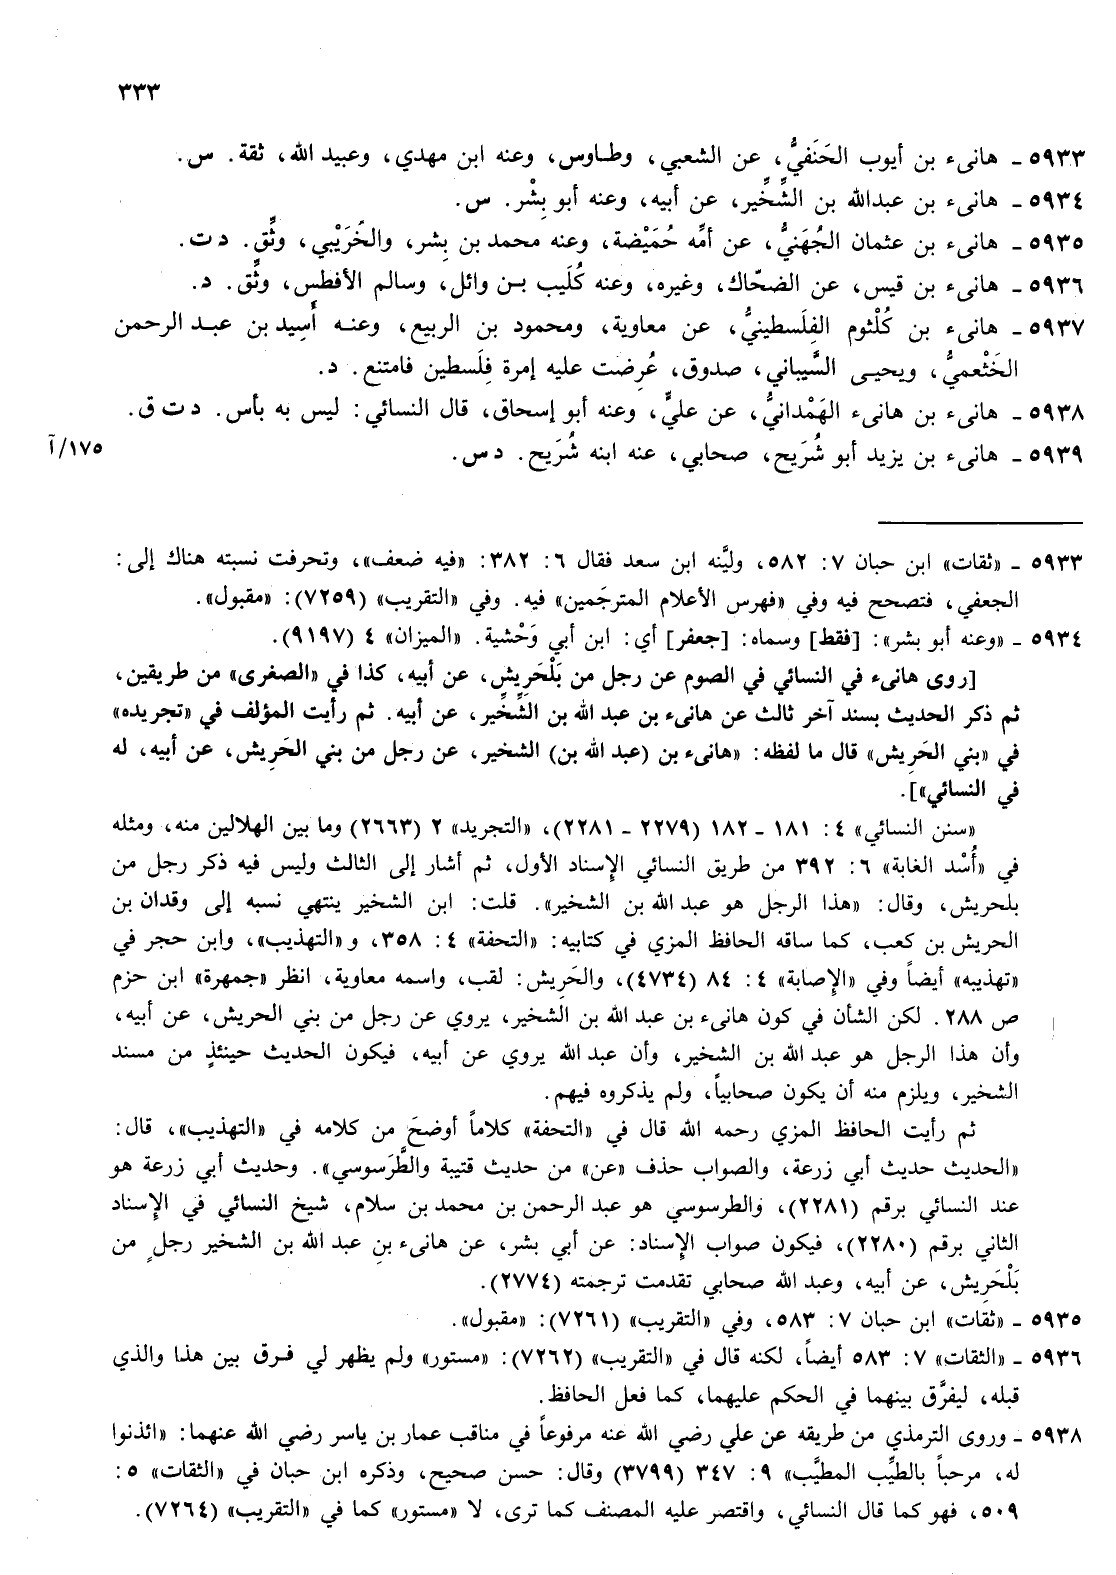 ٣٣٣
٥٩٣٣ ـ هانىء بن أيوب الحَنَفيُّ، عن الشعبي، وطاوس، وعنه ابن مهدي، وعبيد الله، ثقة. س.
٥٩٣٤ ـ هانىء بن عبدالله بن الشِّخِّير، عن أبيه، وعنه أبو بِشْر. س.
٥٩٣٥ ـ هانىء بن عثمان الجُهَنيُّ، عن أمِّه حُمَيْضة، وعنه محمد بن بِشر، والخُرَيْبي، وثِّق. د ت.
٥٩٣٦ ـ هانىء بن قيس، عن الضحّاك، وغيره، وعنه كُلَيب بن وائل، وسالم الأفطس، وثِّق. د.
٥٩٣٧ ـ هانىء بن كُلْثوم الفِلَسطينيُّ، عن معاوية، ومحمود بن الربيع، وعنه أَسِيد بن عبد الرحمن
الخَثْعميُّ، ويحيى السَّيباني، صدوق، عُرِضت عليه إمرة فِلَسطين فامتنع. د.
٥٩٣٨ ـ هانىء بن هانىء الهَمْدانيُّ، عن عليٍّ، وعنه أبو إسحاق، قال النسائي: ليس به بأس. د ت ق.
٥٩٣٩ ـ هانىء بن يزيد أبو شُرَيح، صحابي، عنه ابنه شُرَيح. د س.
١٧٥/آ
٥٩٣٣ ـ «ثقات» ابن حبان ٧: ٥٨٢، وليَّنه ابن سعد فقال ٦: ٣٨٢: «فيه ضعف»، وتحرفت نسبته هناك إلى:
الجعفي، فتصحح فيه وفي «فهرس الأعلام المترجَمين» فيه. وفي «التقريب» (٧٢٥٩): «مقبول».
٥٩٣٤ ـ «وعنه أبو بشر»: [فقط] وسماه: [جعفر] أي: ابن أبي وَحْشية. «الميزان» ٤ (٩١٩٧).
[روى هانىء في النسائي في الصوم عن رجل من بَلْحَرِيش، عن أبيه، كذا في «الصغرى» من طريقين،
ثم ذكر الحديث بسند آخر ثالث عن هانىء بن عبد الله بن الشِّخِّير، عن أبيه. ثم رأيت المؤلف في «تجريده»
في «بني الحَرِيش» قال ما لفظه: «هانىء بن (عبد الله بن) الشخير، عن رجل من بني الحَرِيش، عن أبيه، له
في النسائي»].
«سنن النسائي» ٤: ١٨١ - ١٨٢ (٢٢٧٩ - ٢٢٨١)، «التجريد» ٢ (٢٦٦٣) وما بين الهلالين منه، ومثله
في «أُسْد الغابة» ٦: ٣٩٢ من طريق النسائي الإسناد الأول، ثم أشار إلى الثالث وليس فيه ذكر رجل من
بلحريش، وقال: «هذا الرجل هو عبد الله بن الشخير». قلت: ابن الشخير ينتهي نسبه إلى وقدان بن
الحريش بن كعب، كما ساقه الحافظ المزي في كتابيه: «التحفة» ٤: ٣٥٨، و«التهذيب»، وابن حجر في
«تهذيبه» أيضاً وفي «الإصابة» ٤: ٨٤ (٤٧٣٤)، والحَرِيش: لقب، واسمه معاوية، انظر «جمهرة» ابن حزم
ص ٢٨٨. لكن الشأن في كون هانىء بن عبد الله بن الشخير، يروي عن رجل من بني الحريش، عن أبيه،
وأن هذا الرجل هو عبد الله بن الشخير، وأن عبد الله يروي عن أبيه، فيكون الحديث حينئذٍ من مسند
الشخير، ويلزم منه أن يكون صحابياً، ولم يذكروه فيهم.
ثم رأيت الحافظ المزي رحمه الله قال في «التحفة» كلاماً أوضحَ من كلامه في «التهذيب»، قال:
«الحديث حديث أبي زرعة، والصواب حذف «عن» من حديث قتيبة والطَّرَسوسي». وحديث أبي زرعة هو
عند النسائي برقم (٢٢٨١)، والطرسوسي هو عبد الرحمن بن محمد بن سلام، شيخ النسائي في الإسناد
الثاني برقم (٢٢٨٠)، فيكون صواب الإسناد: عن أبي بشر، عن هانىء بنِ عبد الله بن الشخير رجلٍ من
بَلْحَرِيش، عن أبيه، وعبد الله صحابي تقدمت ترجمته (٢٧٧٤).
٥٩٣٥ ـ «ثقات» ابن حبان ٧: ٥٨٣، وفي «التقريب» (٧٢٦١): «مقبول».
٥٩٣٦ ـ «الثقات» ٧: ٥٨٣ أيضاً، لكنه قال في «التقريب» (٧٢٦٢): «مستور» ولم يظهر لي فرق بين هذا والذي
قبله، ليفرَّق بينهما في الحكم عليهما، كما فعل الحافظ.
٥٩٣٨ ـ وروى الترمذي من طريقه عن علي رضي الله عنه مرفوعاً في مناقب عمار بن ياسر رضي الله عنهما: «ائذنوا
له، مرحباً بالطيِّب المطيَّب» ٩: ٣٤٧ (٣٧٩٩) وقال: حسن صحيح، وذكره ابن حبان في «الثقات» ٥:
٥٠٩، فهو كما قال النسائي، واقتصر عليه المصنف كما ترى، لا «مستور» كما في «التقريب» (٧٢٦٤).